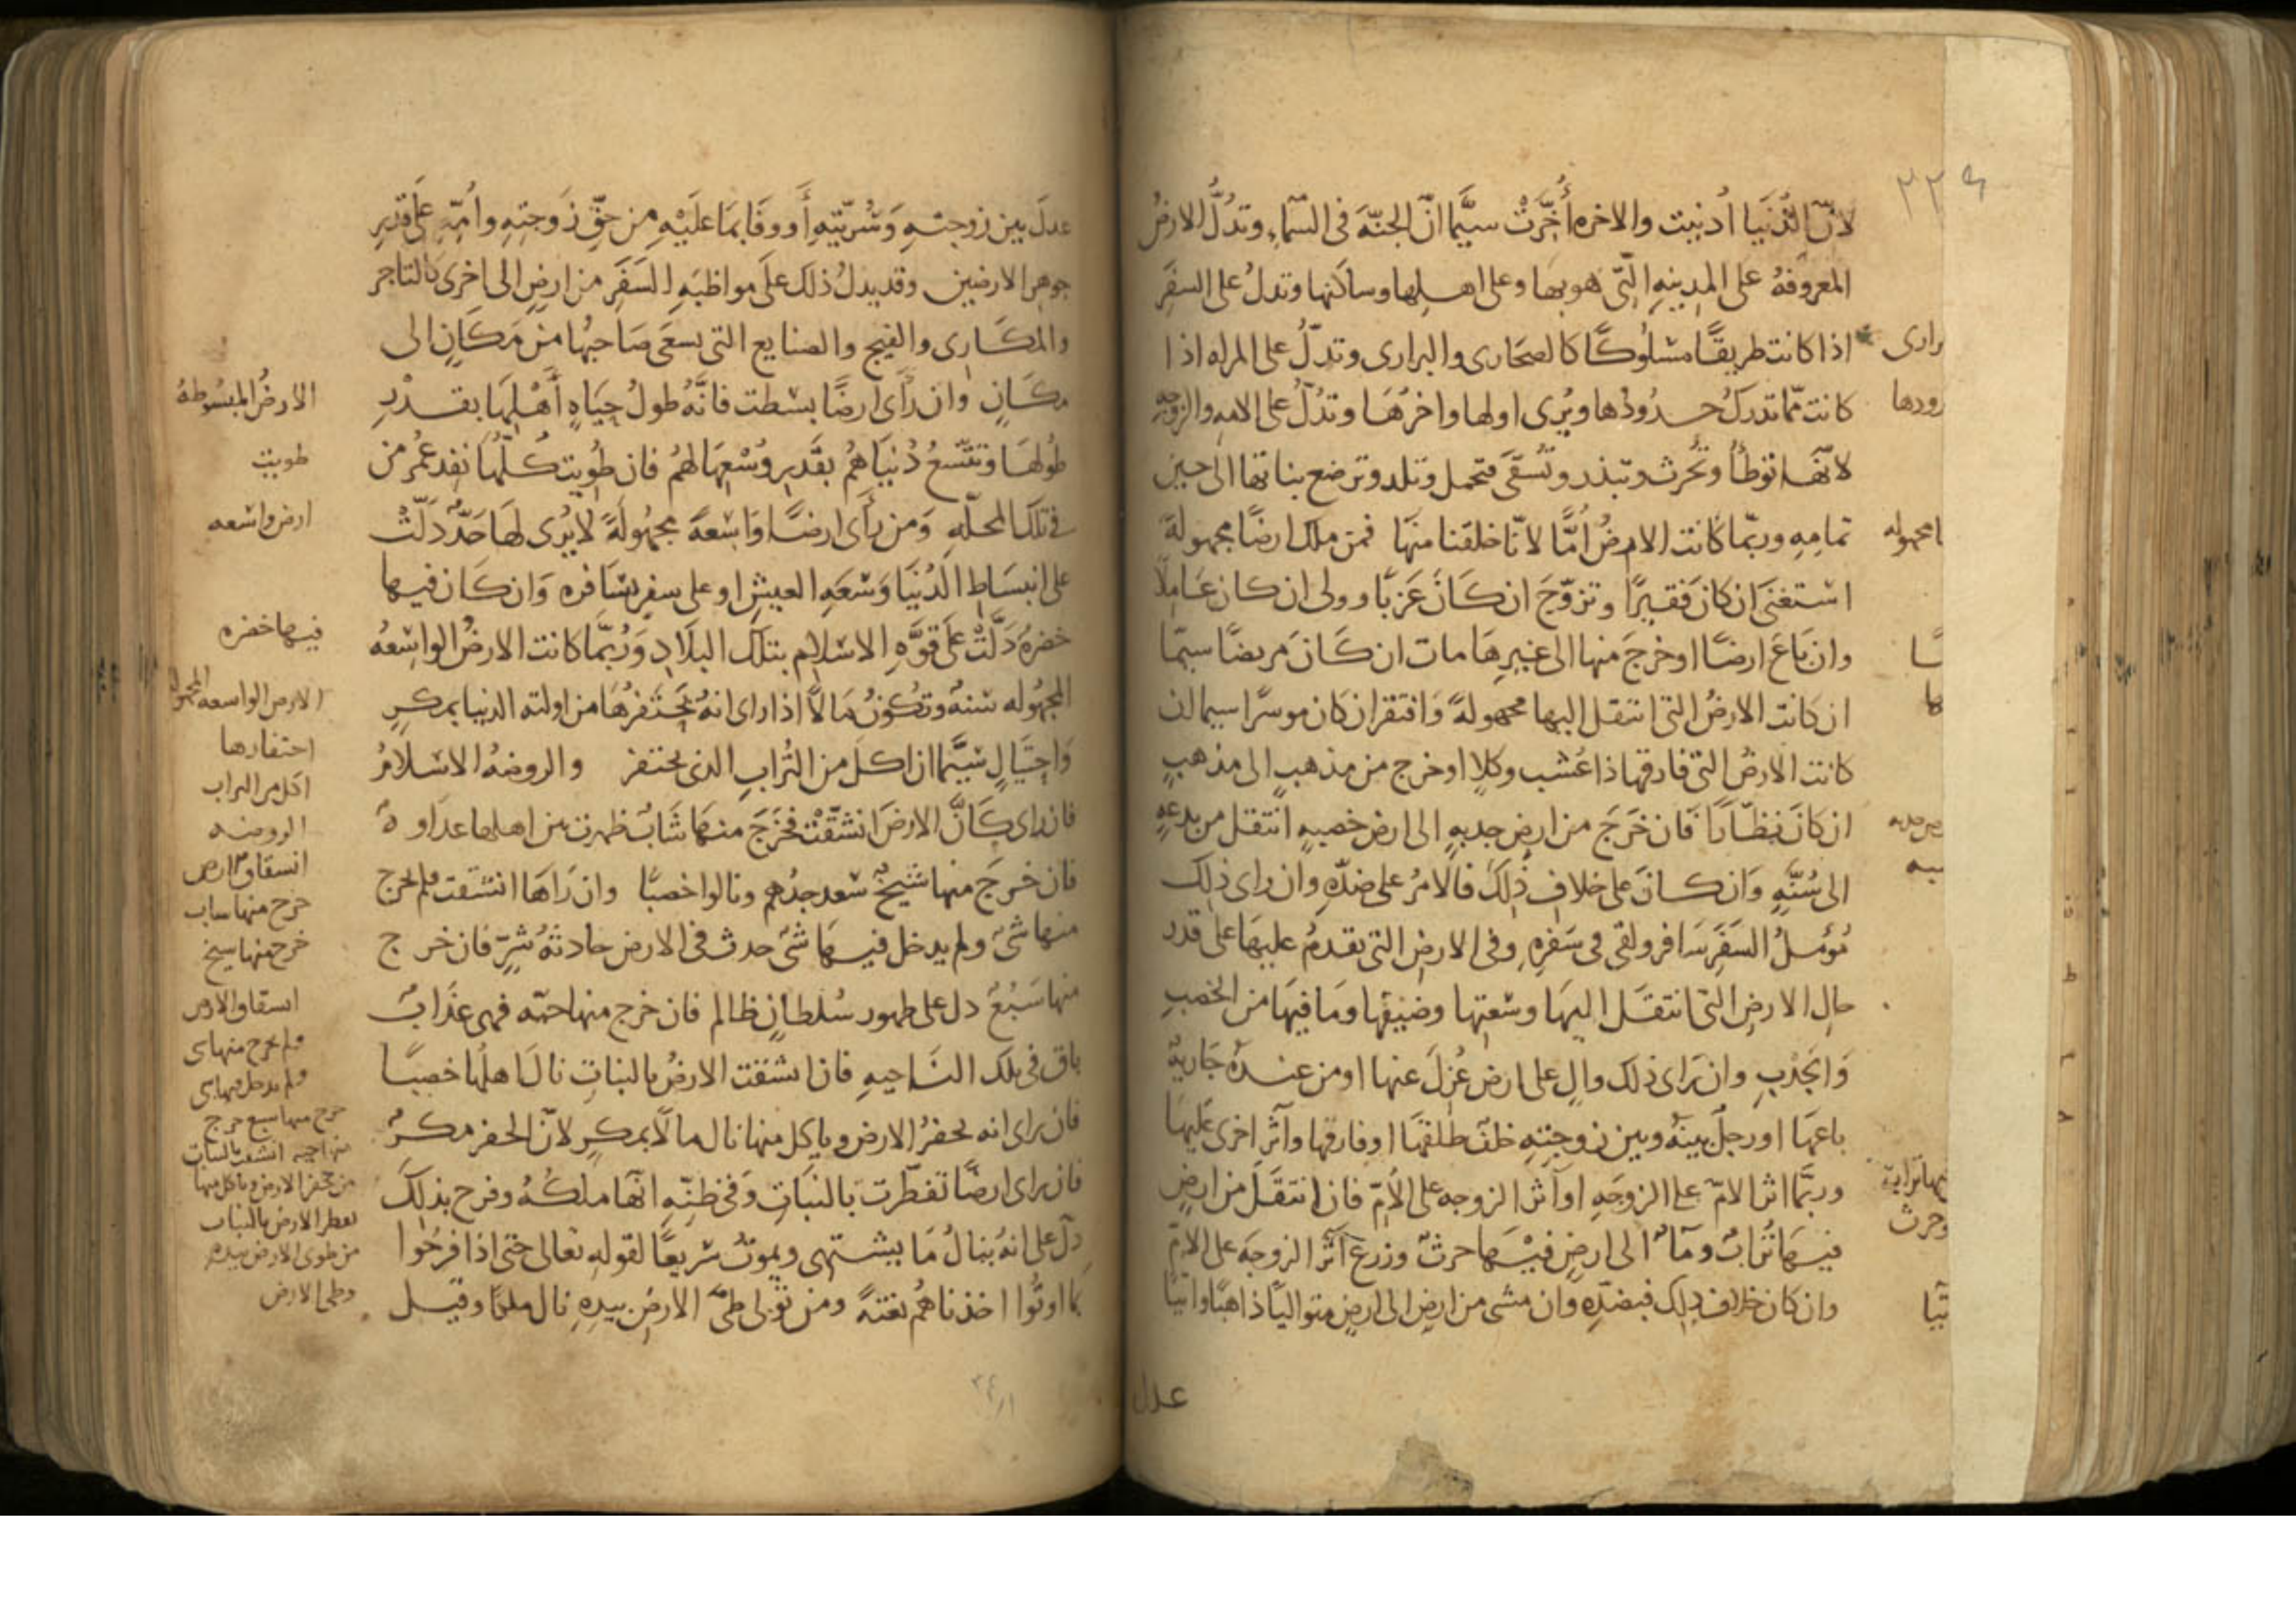 ٢٢٤
لانّ الدُّنيَا أُدنيت والاخره أُخِّرَتْ سيَّما انّ الجنّهَ فى السّمَاءِ وتدُلُّ الارضُ
المعروفهُ على المدينهِ الّتى هو بها وعلى اهلِها وساكنها وتدلُ على السفَرِ
اذا كانت طريقًا مسْلُوكًا كالصحَارى والبرارى وتدلّ على المراه اذا
كانت ممّا تدركُ حدُودُها ويُرى اولها واخرُهَا وتدُلّ على الامهِ والزوجهِ
لانّها توطأُ وتُحرث وتبذر وتُسقَى فتحمل وتلد وترضع بناتها الى حين
تمامِهِ وربّما كانت الارضُ امًّا لانّا خلقنا منهَا فمن ملك ارضًا مجهولةً
استغنَى ان كانَ فقيرًا وتزوّجَ ان كَانَ عَزَبًا وولى ان كان عَامِلًا
وان بَاعَ ارضًا او خرجَ منها الى غيرِهَا مات ان كَانَ مريضًا سيّما
ان كانت الارضُ التى انتقل اليها مجهولةً وَافتقر ان كان موسرًا سيما ان
كانت الارضُ التى فارقها ذا عُشب وكلاٍ او خرج من مذهبٍ الى مذهبٍ
ان كانَ نظّارًا فان خَرَجَ من ارضٍ جدبهٍ الى ارض خصبهٍ انتقل من بدعهٍ
الى سُنّهٍ وَان كانَ على خلافِ ذٰلِكَ فالامرُ على ضدّهِ وان راى ذلك
مُؤمّلُ السفَرِ سَافر ولقى فى سَفرِهِ وفى الارضِ التى يقدمُ عليهَا على قدر
حالِ الارضِ التى انتقل اليهَا وسعتِها وضيقِها ومَا فيهَا من الخصبِ
وَالجَدْبِ وان رَاى ذلك والٍ على ارض عُزلَ عنها او من عندهُ جَاريهٌ
باعهَا او رجلٌ بينهُ وبين زوجتهِ خلفٌ طلقهَا او فارقها وآثر اخرى عليهَا
وربّما اثر الامّ على الزوجَهِ او آثر الزوجه على الأمّ فان انتقَلَ من ارضٍ
فيهَا تُرابٌ ومآءٌ الى ارضٍ فيْهَا حرثٌ وزرعٌ آثر الزوجَه على الامّ
وان كان خلافَ ذلك فبضدّهِ وان مشى من ارضٍ الى ارضٍ متواليًا ذاهبًا واتيًا
عدل
رارى
رودها
ا مجهوله
ـا
ها
رض جدبه
ـبه
فيها تراب
وحرث
تيا
عدلَ بين زوجتهِ وَسُرّيّتِهِ أَو وفَا بمَا علَيْهِ من حقّ زوجتِهِ وامّهِ على قدرِ
جوهرِ الارضين وقد يدلُ ذلك علَى مواظبَهِ السَفَرِ من ارضٍ الى اخرى كالتاجر
والمكَارِى والفيج والصنايع التى يسعَى صَاحبُها من مَكَانٍ الى
مكَانٍ وان رَأى ارضًا بسطت فانّهُ طولُ حيَاهِ أَهْلِهَا بقَدْرِ
طُولهَا وتتّسعُ دُنيَاهُم بقَدرِ وُسْعِهَا لهُم فان طُويت كُلّهَا نفد عُمُر من
فى تلك المحلّهِ وَمن رأى ارضًا وَاسعةً مجهُولَةً لا يُرى لهَا حَدٌّ دَلّتْ
على انبسَاطِ الدُنيَا وَسَعَهِ العيشِ او على سفرٍ يسَافره وَان كَان فيها
خضرهٌ دَلّتْ على قوّهِ الاسلام بتلك البلَادِ وَرُبّما كانت الارضُ الواسعهُ
المجهُوله سَنهٌ وتكونُ مَالاً اذا راى انهُ يحتفرُهَا من اولته الدنيا بمكرٍ
وَاحتيَالٍ سيّما ان اكل من التُرابِ الذى يحتفر والروضهُ الاسلامُ
فان راى كَانَّ الارضَ انشقّتْ فخَرَجَ منها شَابٌ ظهرت بين اهلها عدَاوهٌ
فان خرجَ منها شيخٌ سعد جدُهم ونالوا خصبًا وان رَاهَا انشقت فلم يخرج
منها شىٌ ولم يدخل فيهَا شىٌ حدث فى الارض حادثهُ شرٍّ فان خرج
منها سَبُعٌ دل على ظهور سُلطانٍ ظالم فان خرج منها حيّه فهى عذَابٌ
باق فى تلك النَاحيهِ فان انشقت الارضُ بالنباتِ نالَ اهلُها خصبًا
فان راى انه يحفرُ الارض وياكل منها نال مالاً بمكرٍ لانّ الحفر مكرٌ
فان راى ارضًا تفطّرت بَالنبَاتِ وَفى ظنّهِ انّها ملكُهُ وفرح بذلك
دلّ على انهُ ينالُ مَا يشتهى ويموتُ سَريعًا لقولهِ تعالى حتى اذا فرحُوا
بما اوتُوا اخذناهُم بغتةً ومن تولى طىّ الارضِ بيدِهِ نال ملكًا وقيل
الارضُ المبسُوطهُ
طويت
ارض واسعه
فيها خضره
الارض الواسعه المجهوله
احتفارها
اكل من التراب
الروضه
انشقاق الارض
خرج منها شاب
خرج منها شيخ
انشقاق الارض
ولم يخرج منها شى
ولم يدخل فيها شى
خرج منها سبع خرج
منها حيه انشقت بالنبات
من يحفر الارض وياكل منها
تفطر الارض بالنبات
من طوى الارض بيده
وطى الارض